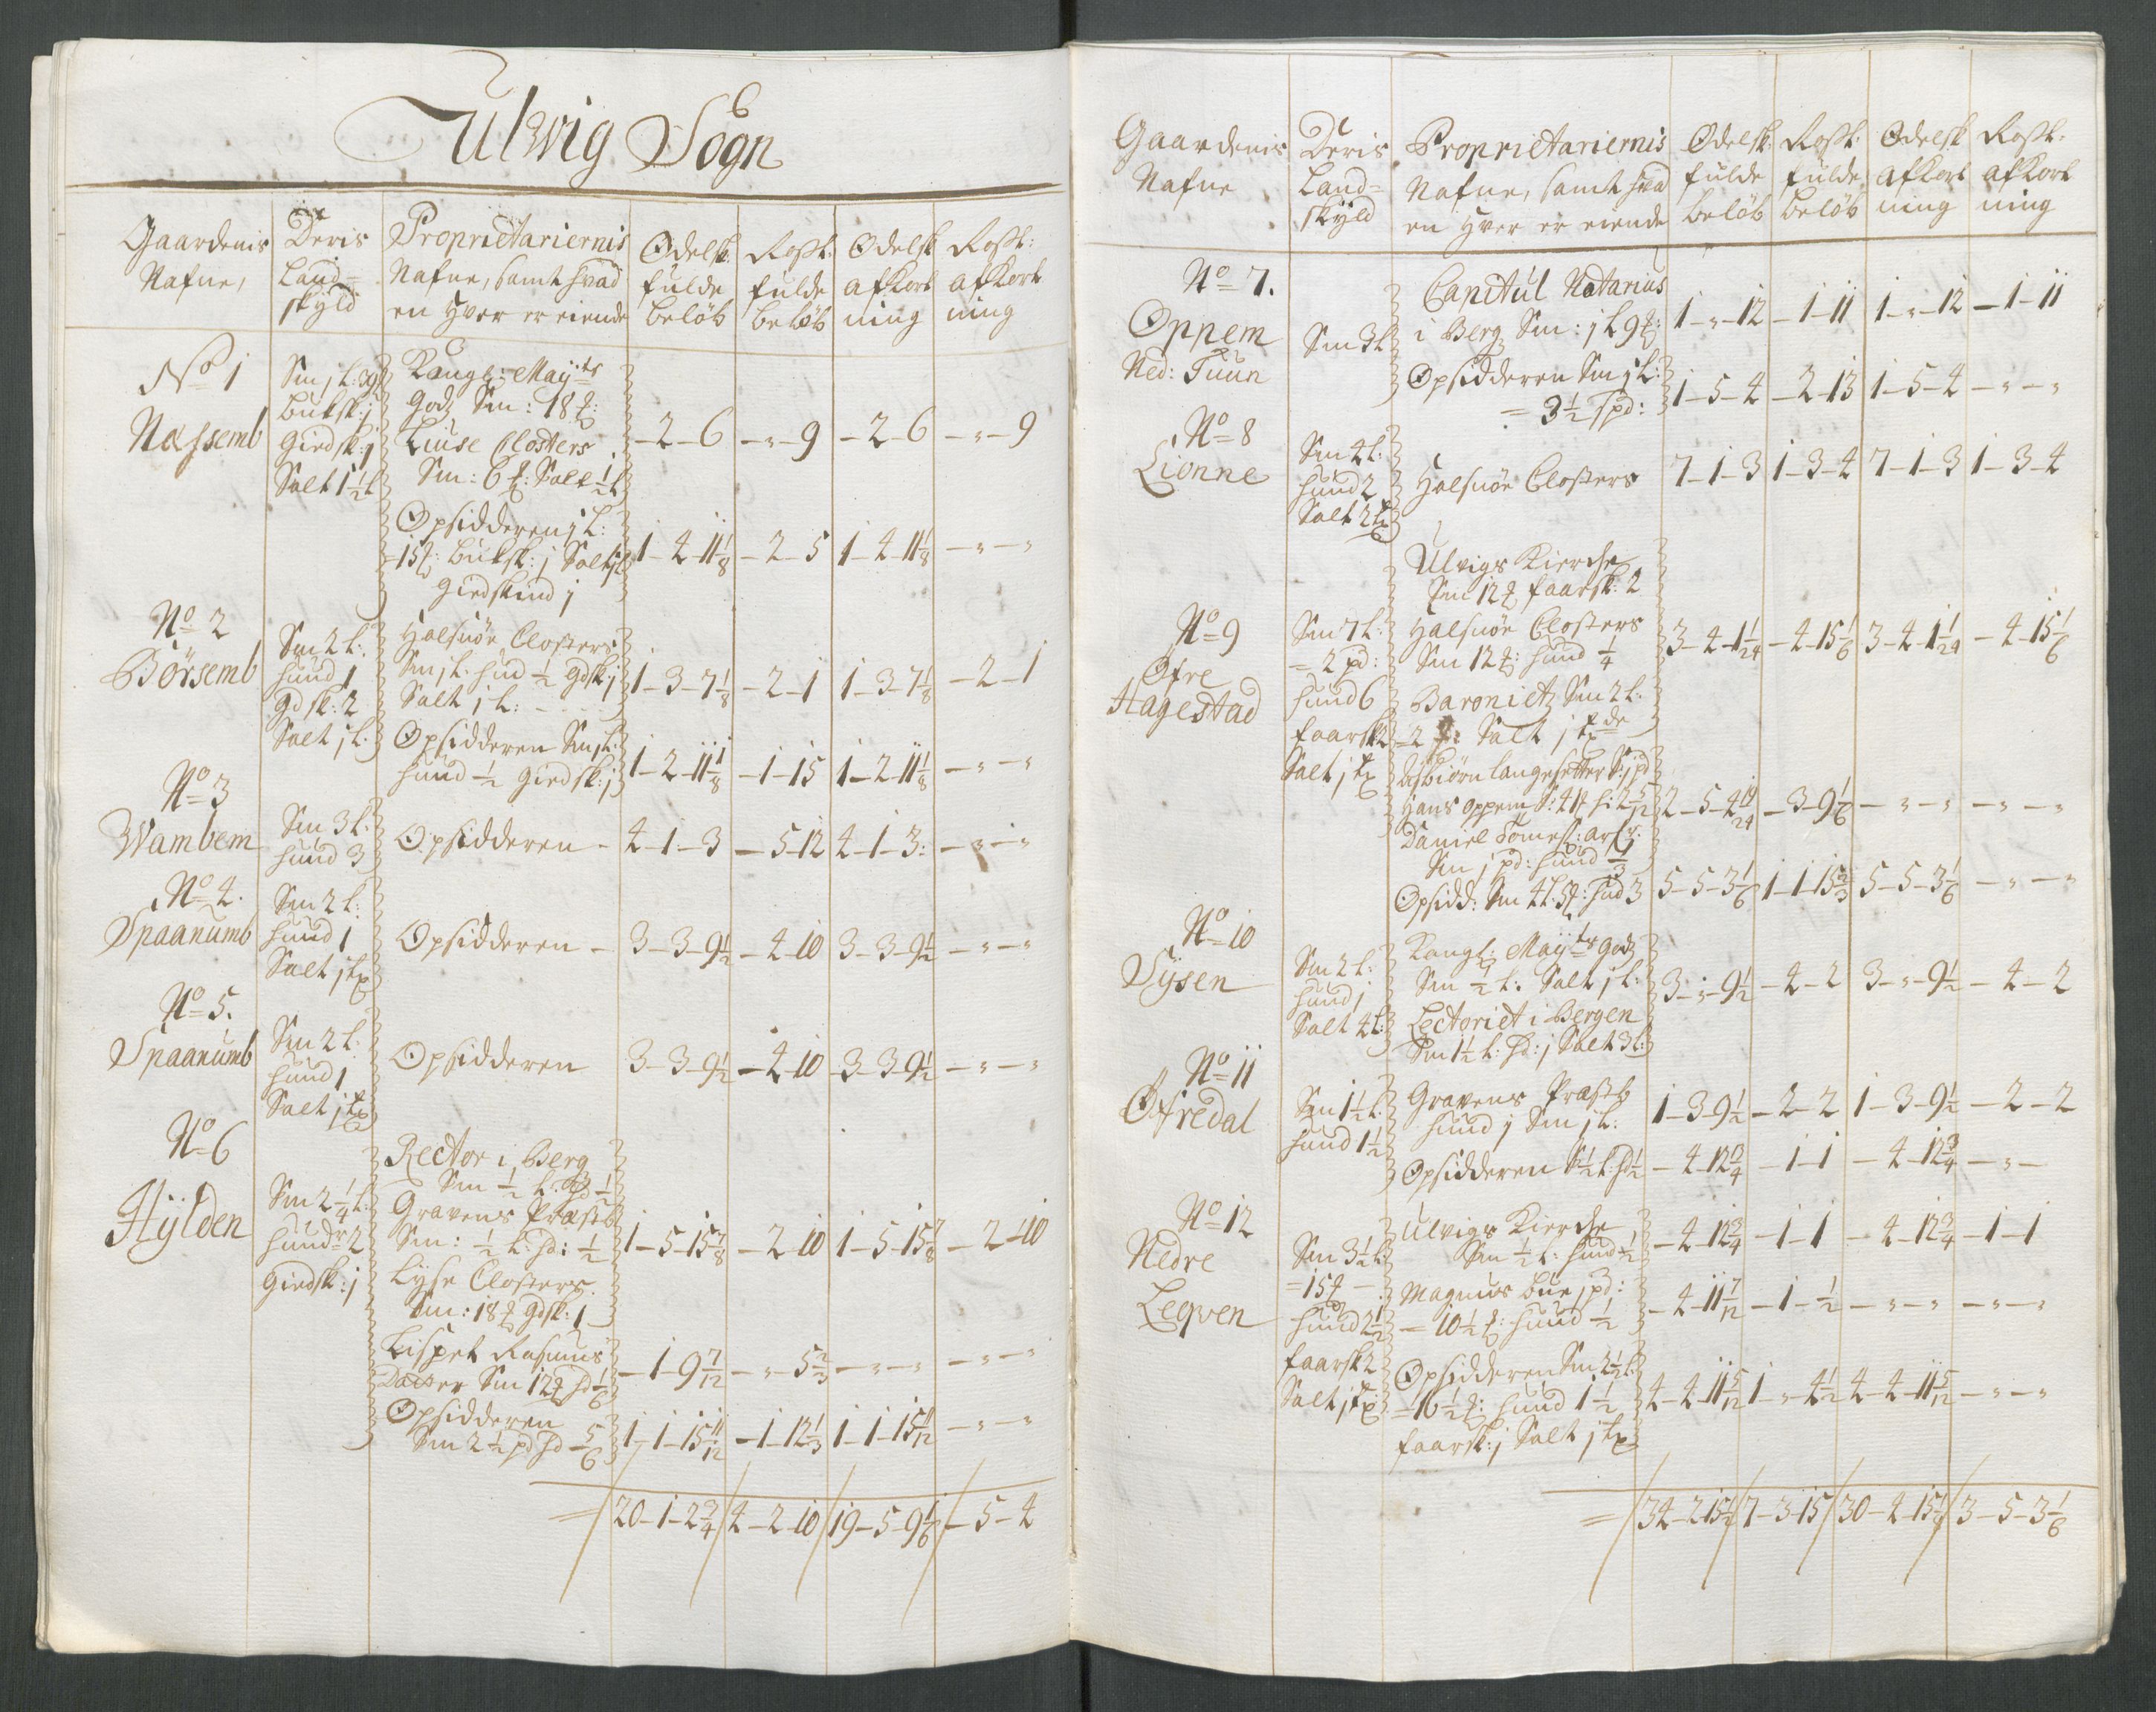 Ulwig Sogn
Gaardenis Nafne,
Deris Land= skyld
Proprietariernis Nafne, samt hvad en hver er eiende
Ødelsk: fulde beløb
Rosst: fulde beløb
Ødelsk afkort ning
Rosst: afkort ning
No 1
Næssemb
Sm j L: 39
buksk: j
giedsk: j
Salt 1½ L
Kongl: Mayts
godz Sm: 18
Liuse Closters
Sm: 6 Salt ½ L
-2-6 -"-9 -2-6 -"-9
Opsidderen j L:
=15 buksk: j Salt j L
giedskind j
1-4-11⅛ -2-5 1-4-11⅛ -"-"
No 2
Børsemb
Sm 2 L:
hund 1
gdsk: 2
Salt j L.
Halsnøe Closters
Sm j L. hud ½ gdsk: j
Salt j L:
1-3-7⅛ -2-1 1-3-7⅛ -2-1
Opsidderen Sm j L:
hund ½ giedsk: j
1-2-11⅛ -1-15 1-2-11⅛ -"-"
No 3
Wambem
Sm 3 L:
hund 3
Opsidderen -
4-1-3 -5-12 4-1-3: -"-"
No 4.
Spaanumb
Sm 2 L:
hund 1
Salt j tø
Opsidderen -
3-3-9½ -4-10 3-3-9½ -"-"
No 5.
Spaanumb
Sm 2 L.
hund 1
Salt j tø
Opsidderen
3-3-9½ -4-10 3-3-9½ -"-"
No 6
Hÿlden
Sm 2¼ L:
hundr 2
giedsk: j
Rector i Berg
Sm ½ L: hd ½
Gravens Præstb
Sm: ½ L: hd: ½
Lÿse Closters
Sm: 18 gdsk: 1
1-5-15⅞ -2-10 1-5-15⅞ -2-10
Lispet Rasmus
Datter Sm 12 hd ⅙
-1-9 7/12 -"-5⅔ -"-" -"-"
Opsidderen
Sm 2½ pd hd ⅚
1-1-15 11/12 -1-12⅓ 1-1-15 11/12 -"-"
= 20-1-2¾ / 4-2-10 / 19-5-9⅙ / -5-4
Gaardenis Nafne
Deris Land= skyld
Proprietariernis Nafne, samt hvad en hver er eiende
Ødelsk: fulde beløb
Rosst: fulde beløb
Ødelsk afkort ning
Rosst: afkort ning
No 7.
Oppem
Ned: Tuun
Sm 3 L
Capitul Notarius
i Berg Sm: j L 9
1-"-12 -1-11 1-"-12 -1-11
Opsidderen Sm j L:
=3½ spd:
1-5-4 -2-13 1-5-4 -"-"
No 8
Lionne
Sm 4 L:
hund 2
Salt 2 tø
Halsnøe Closters
7-1-3 1-3-4 7-1-3 1-3-4
No 9
Øfre
Hagestad
Sm 7 L:
=2 pd:
hund 6
faarsk 2
Salt j tø
Ulvigs Kierche
Sm 12 faarsk: 2
Halsnøe Closters
Sm 12 hund ¼
Baronietz Sm 2 L:
=2 Salt j tøde
3-4-1 1/24 -4-15⅙ 3-4-1 1/24 -4-15⅙
Asbiørn Langesetter S: j pd
Hans Oppem S: 4 h: 2 5/12
Daniel Tomess: arf:r
Sm j pd: hund ⅓
2-5-4 19/24 -3-9⅙ -"-" -"-"
Opsidd: Sm 4 L. 5 hud 3
5-5-3⅙ 1-1-15⅔ 5-5-3⅙ -"-"
No 10
Sÿsen
Sm 2 L:
hund j
Salt 4 L:
Kongl: Maÿts godz
Sm ½ L: Salt j L:
Lectoriet i Bergen
Sm 1½ L: hd: j Salt 3 L:
3-"-9½ -4-2 3-"-9½ -4-2
No 11
Øfredal
Sm 1½ L.
hund 1½
Gravens Præstb
hund j Sm j L:
1-3-9½ -2-2 1-3-9½ -2-2
Opsidderen S ½ L: hd ½
-4-12¾ -1-1 -4-12¾ -"-
No 12
Nedre
Leqven
Sm 3½ L:
=15 -
hund 2½
faarsk 2
Salt j tø:
Ulvigs Kierche
Sm ½ L: hund ½
-4-12¾ -1-1 -4-12¾ -1-1
Magnus bue j pd:
=10½ hund ½
-4-11 7/12 -1-½ -"-" -"-"
Opsidderen Sm 2½ L:
=16½ hund 1½
faarsk: j Salt j tø
4-4-11 5/12 1-"-4½ 4-4-11 5/12 -"-"
= 34-2-15½ / 7-3-15 / 30-4-15⅛ / 3-5-3⅙